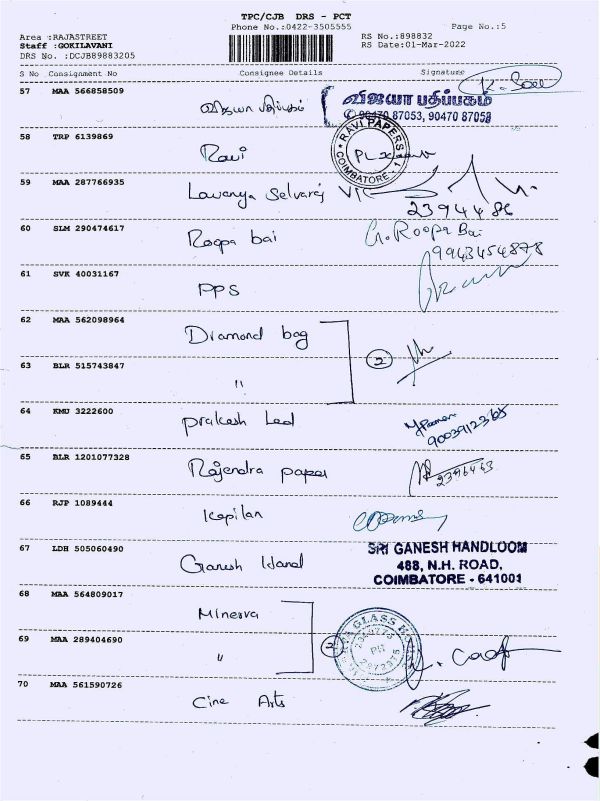 TPC/CJB DRS - PCT
Phone No.:0422-3505555
Page No.:5
Area :RAJASTREET
RS No.:898832
Staff :GOKILAVANI
RS Date:01-Mar-2022
DRS No. :DCJB89883205
S No Consignment No Consignee Details Signature
57 MAA 566858509
விஜயா பதிப்பகம்
விஜயா பதிப்பகம்
✆ 90470 87053, 90470 87058
58 TRP 6139869
Ravi
RAVI PAPERS
COIMBATORE - 1
59 MAA 287766935
Lavanya Selvaraj
2394486
60 SLM 290474617
Roopa bai
G. Roopa Bai
9943454878
61 SVK 40031167
PPS
62 MAA 562098964
Diamond bag
2
63 BLR 515743847
"
64 KMU 3222600
prakash Led
9003912365
65 BLR 1201077328
Rajendra paper
2396463
66 RJP 1089444
Kapilan
67 LDH 505060490
Ganesh Hand
SRI GANESH HANDLOOM
488, N.H. ROAD,
COIMBATORE - 641001
68 MAA 564809017
Minerva
2
69 MAA 289404690
"
70 MAA 561590726
Cine Arts